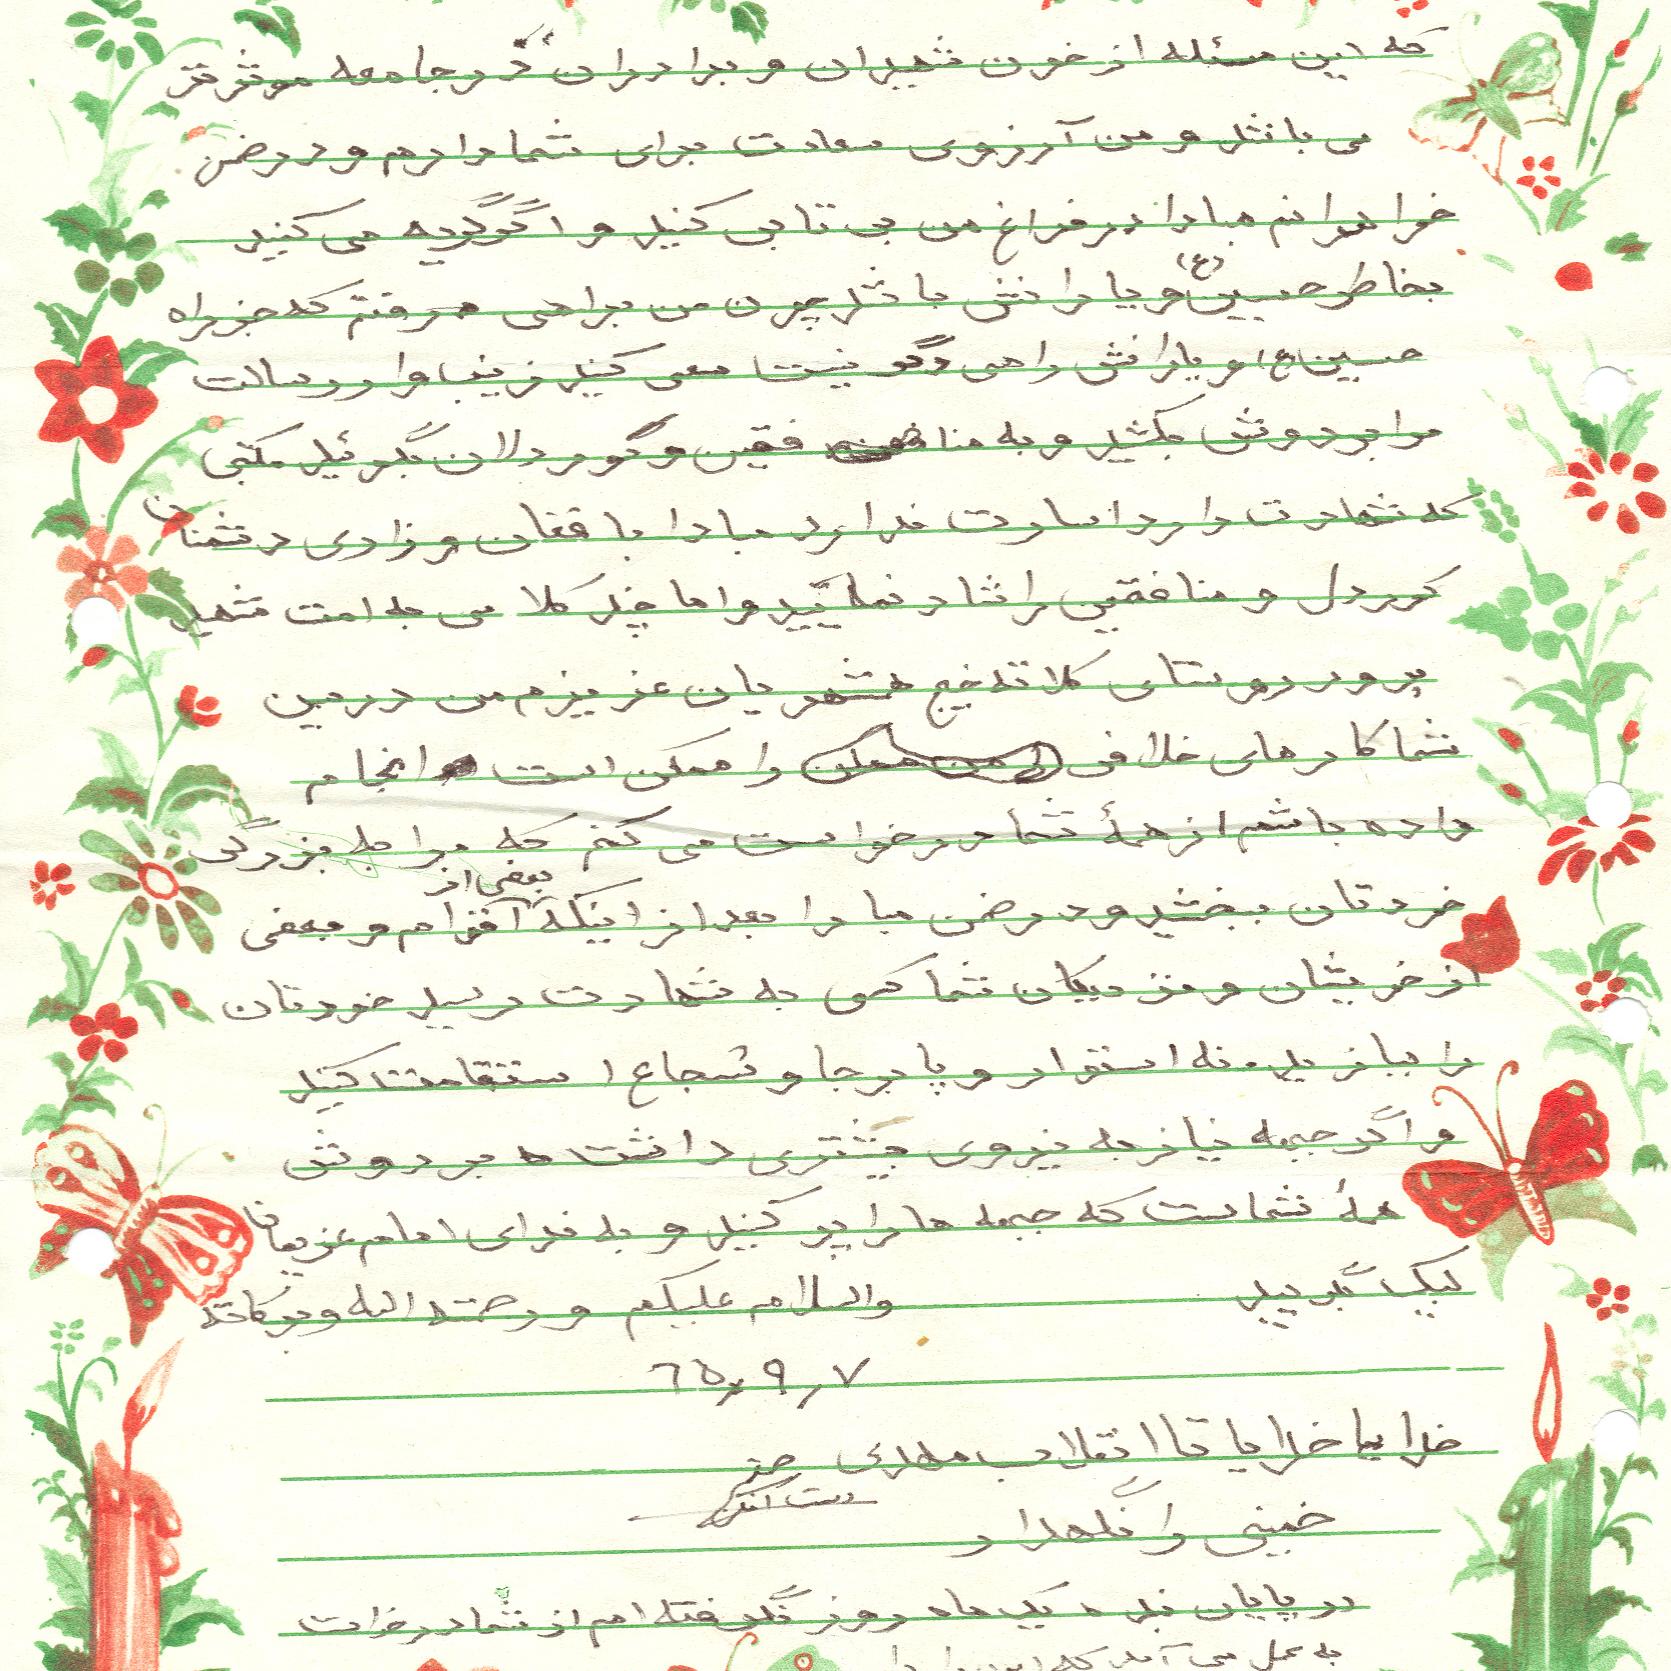 که این مسئله از خون شهیدان و برادران در جامعه موثرتر
می باشد و من آرزوی سعادت برای شما دارم و در ضمن
مبادا در فراغ من بی تابی کنید و اگر گریه می کنید
بخاطر حسین (ع) و یارانش باشد چون من براهی رفتم که جز راه
حسین (ع) و یارانش راهی دگر نیست سعی کنید زینب وار رسالت
مرا بر دوش بکشید و به منافقین و کوردلان بگوئید مکتبی
که شهادت دارد اسارت ندارد مبادا با فغان و زاری دشمنان
کوردل و منافقین را شاد نمائید و اما چند کلامی به امت شهید
پرور روستای کلاته خیج همشهریان عزیزم من در بین
شما کارهای خلافی را ممکن است انجام
داده باشم از همهٔ شما درخواست می کنم که مرا به بزرگی
خودتان ببخشید و در ضمن مبادا بعد از اینکه بعضی از اقوام و بعضی
از خویشان و نزدیکان شما کسی به شهادت رسید خودتان
را ببازید نه استوار و پابرجا و شجاع استقامت کنید
و اگر جبهه نیاز به نیروی بیشتری داشت بر دوش
همهٔ شماست که جبهه ها را پر کنید و به ندای امام عزیزمان
لبیک بگویید والسلام علیکم و رحمته الله و برکاته
۷ ر ۹ ر ۶۵
خدایا خدایا تا انقلاب مهدی
خمینی را نگهدار
در پایان یک ماه روزه گرفته ام از شما درخواست
به عمل می آید که این را